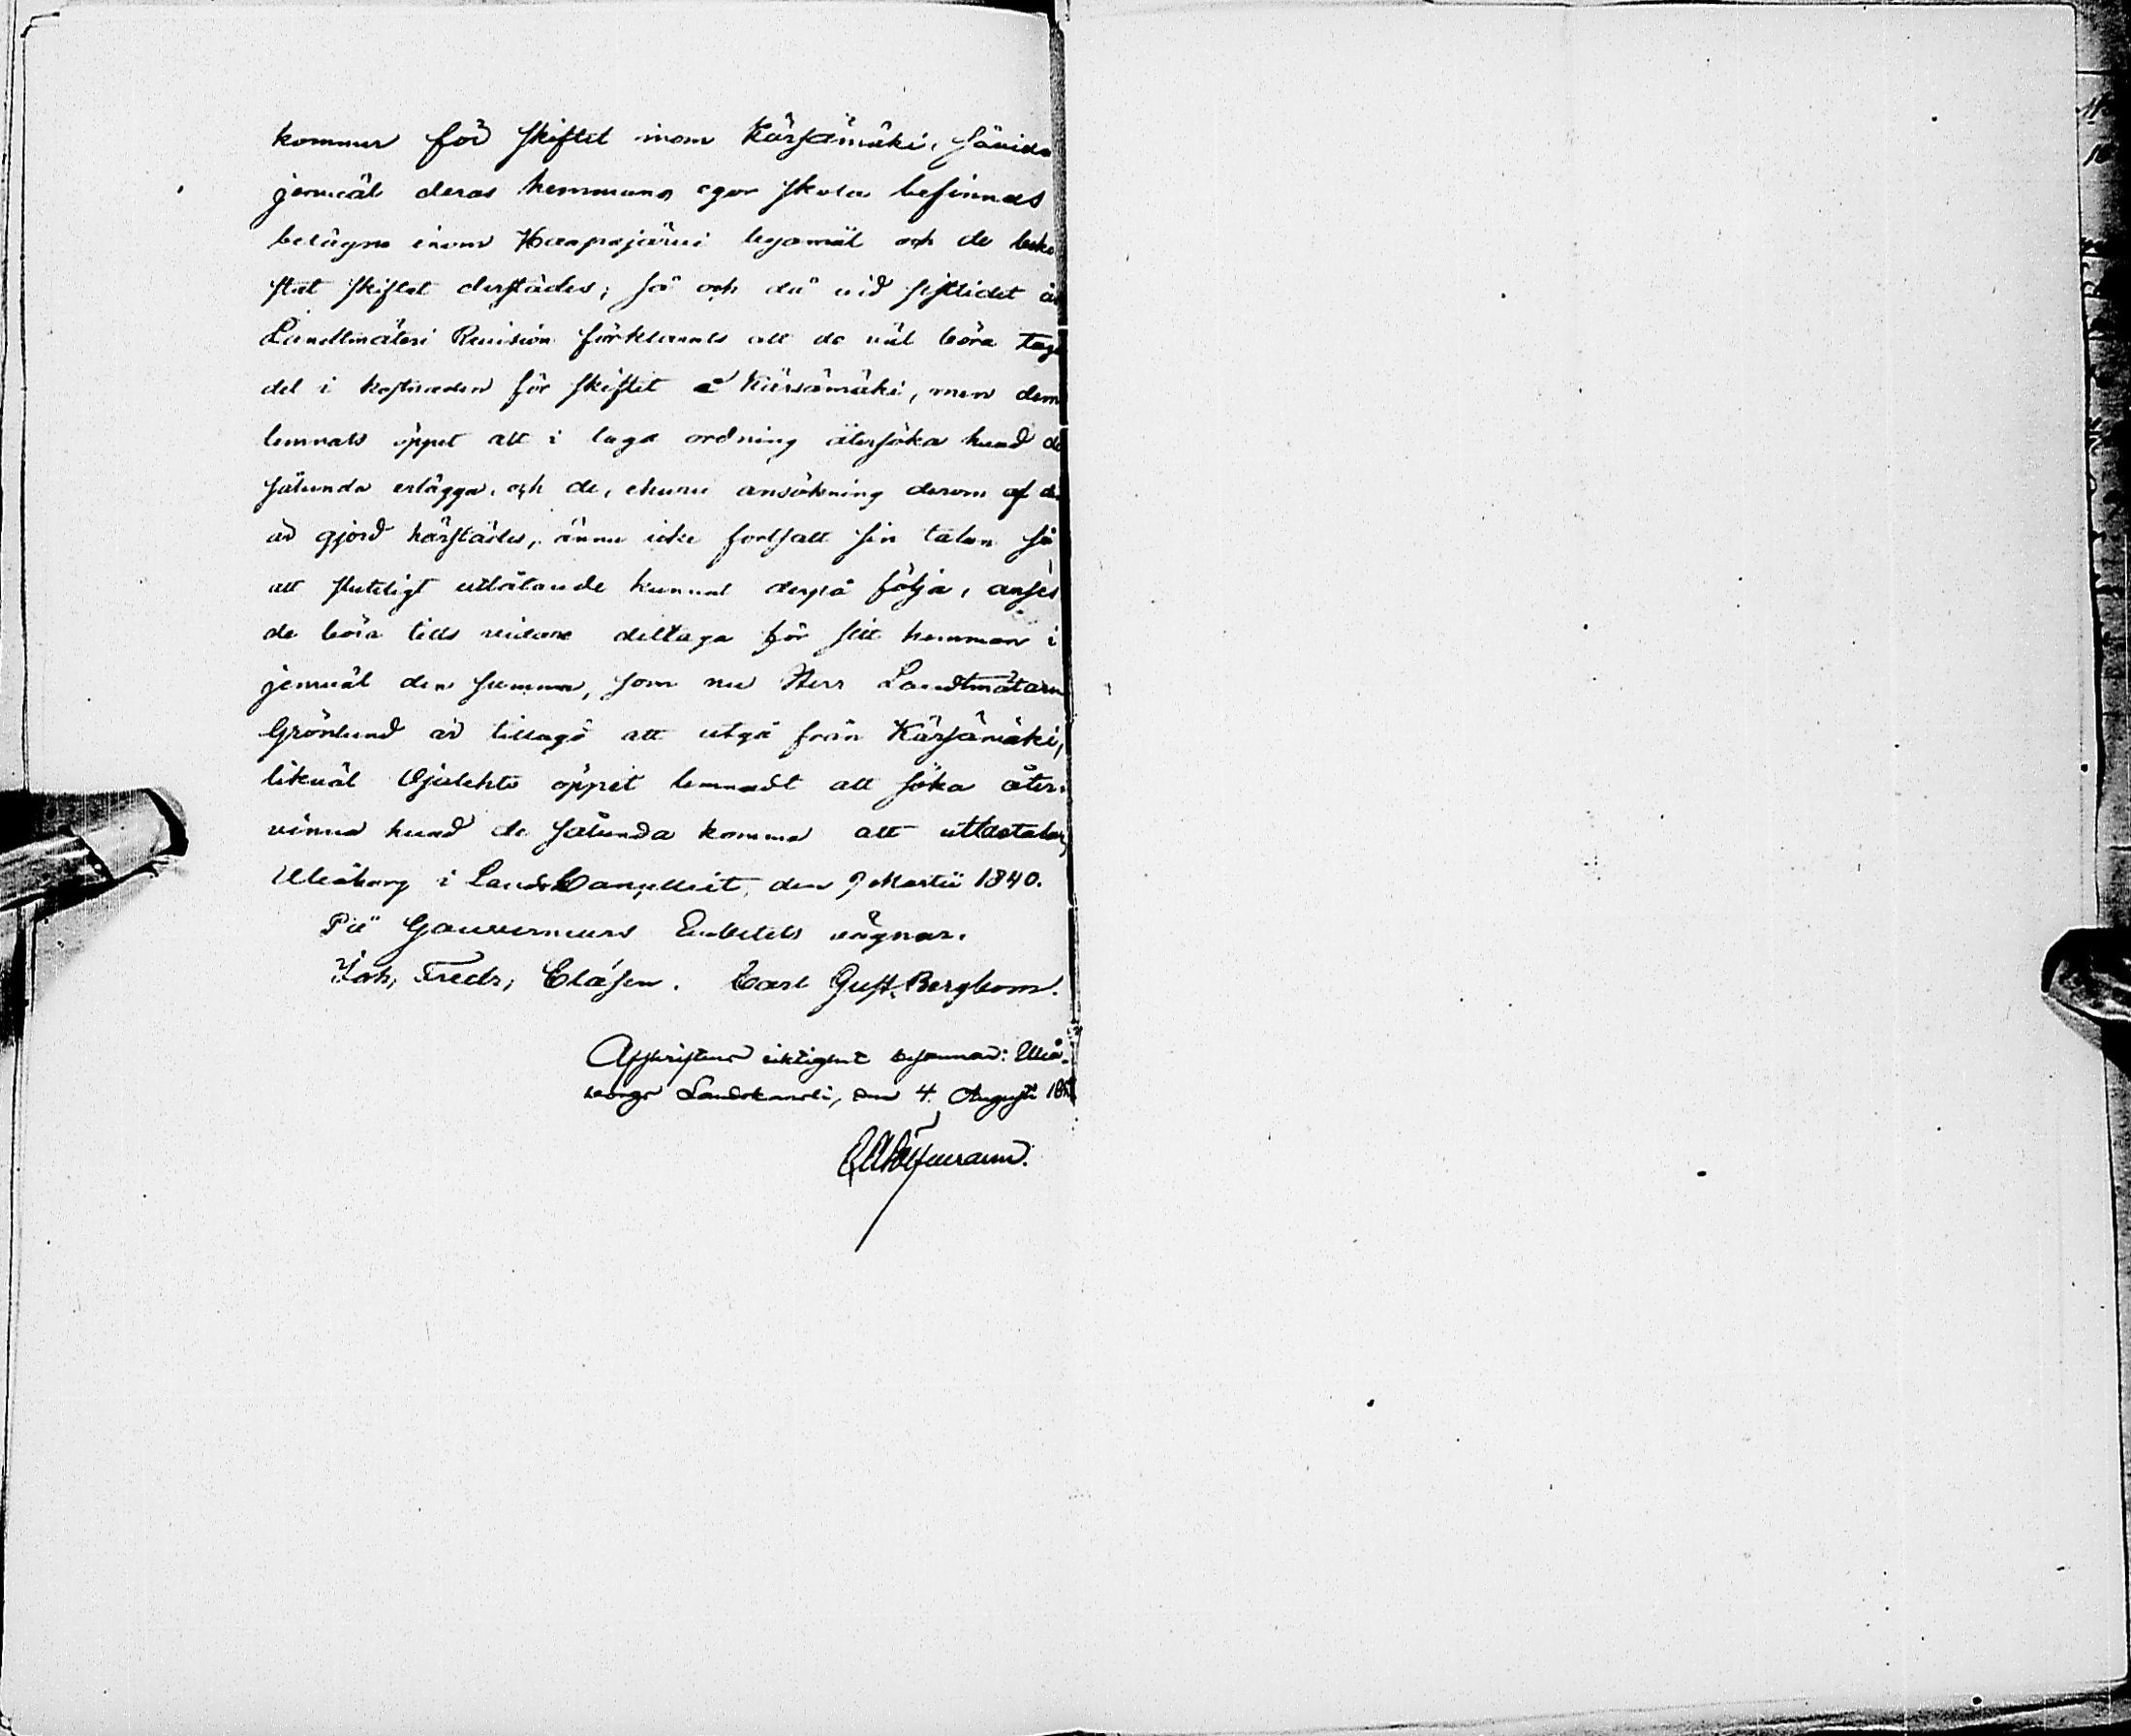 kommer för skiftet inom Kärsämäki, såvida
jemväl deras hemmans egor skola befinnas
belägne inom Haapajärvi byamål och de beko
stat skiftet derstädes; så och då vid sistlidet år
Landtmäteri Revision förklarats att de väl böra taga
del i kostnaden för skiftet å Kärsämäki, men dem
lemnats öppet att i laga ordning återsöka hvad de
sålunda erlägga, och de, ehuru ansökning derom af dem
är gjord härstädes, ännu icke fortsatt sin talan så
att slutligt utlåtande kunnat derpå följa, anses
de böra tills vidare deltaga för sitt hemman i
jemväl den summa, som nu Herr Landtmätaren
Grönlund är tillagd att utgå från Kärsämäki,
likväl öppet lemnadt att söka åter-
vinna hvad de sålunda komma att utbetala,
Uleåborg i LandsCancelliet, den 9 Martii 1840.
På Gouverneurs Embetets vägnar.
Joh, Fredr, Clásen. Carl Gust. Bergbom.
Afskriftens riktighet bestyrkas: Uleå-
borgs Landskansli, den 4. Augusti 18